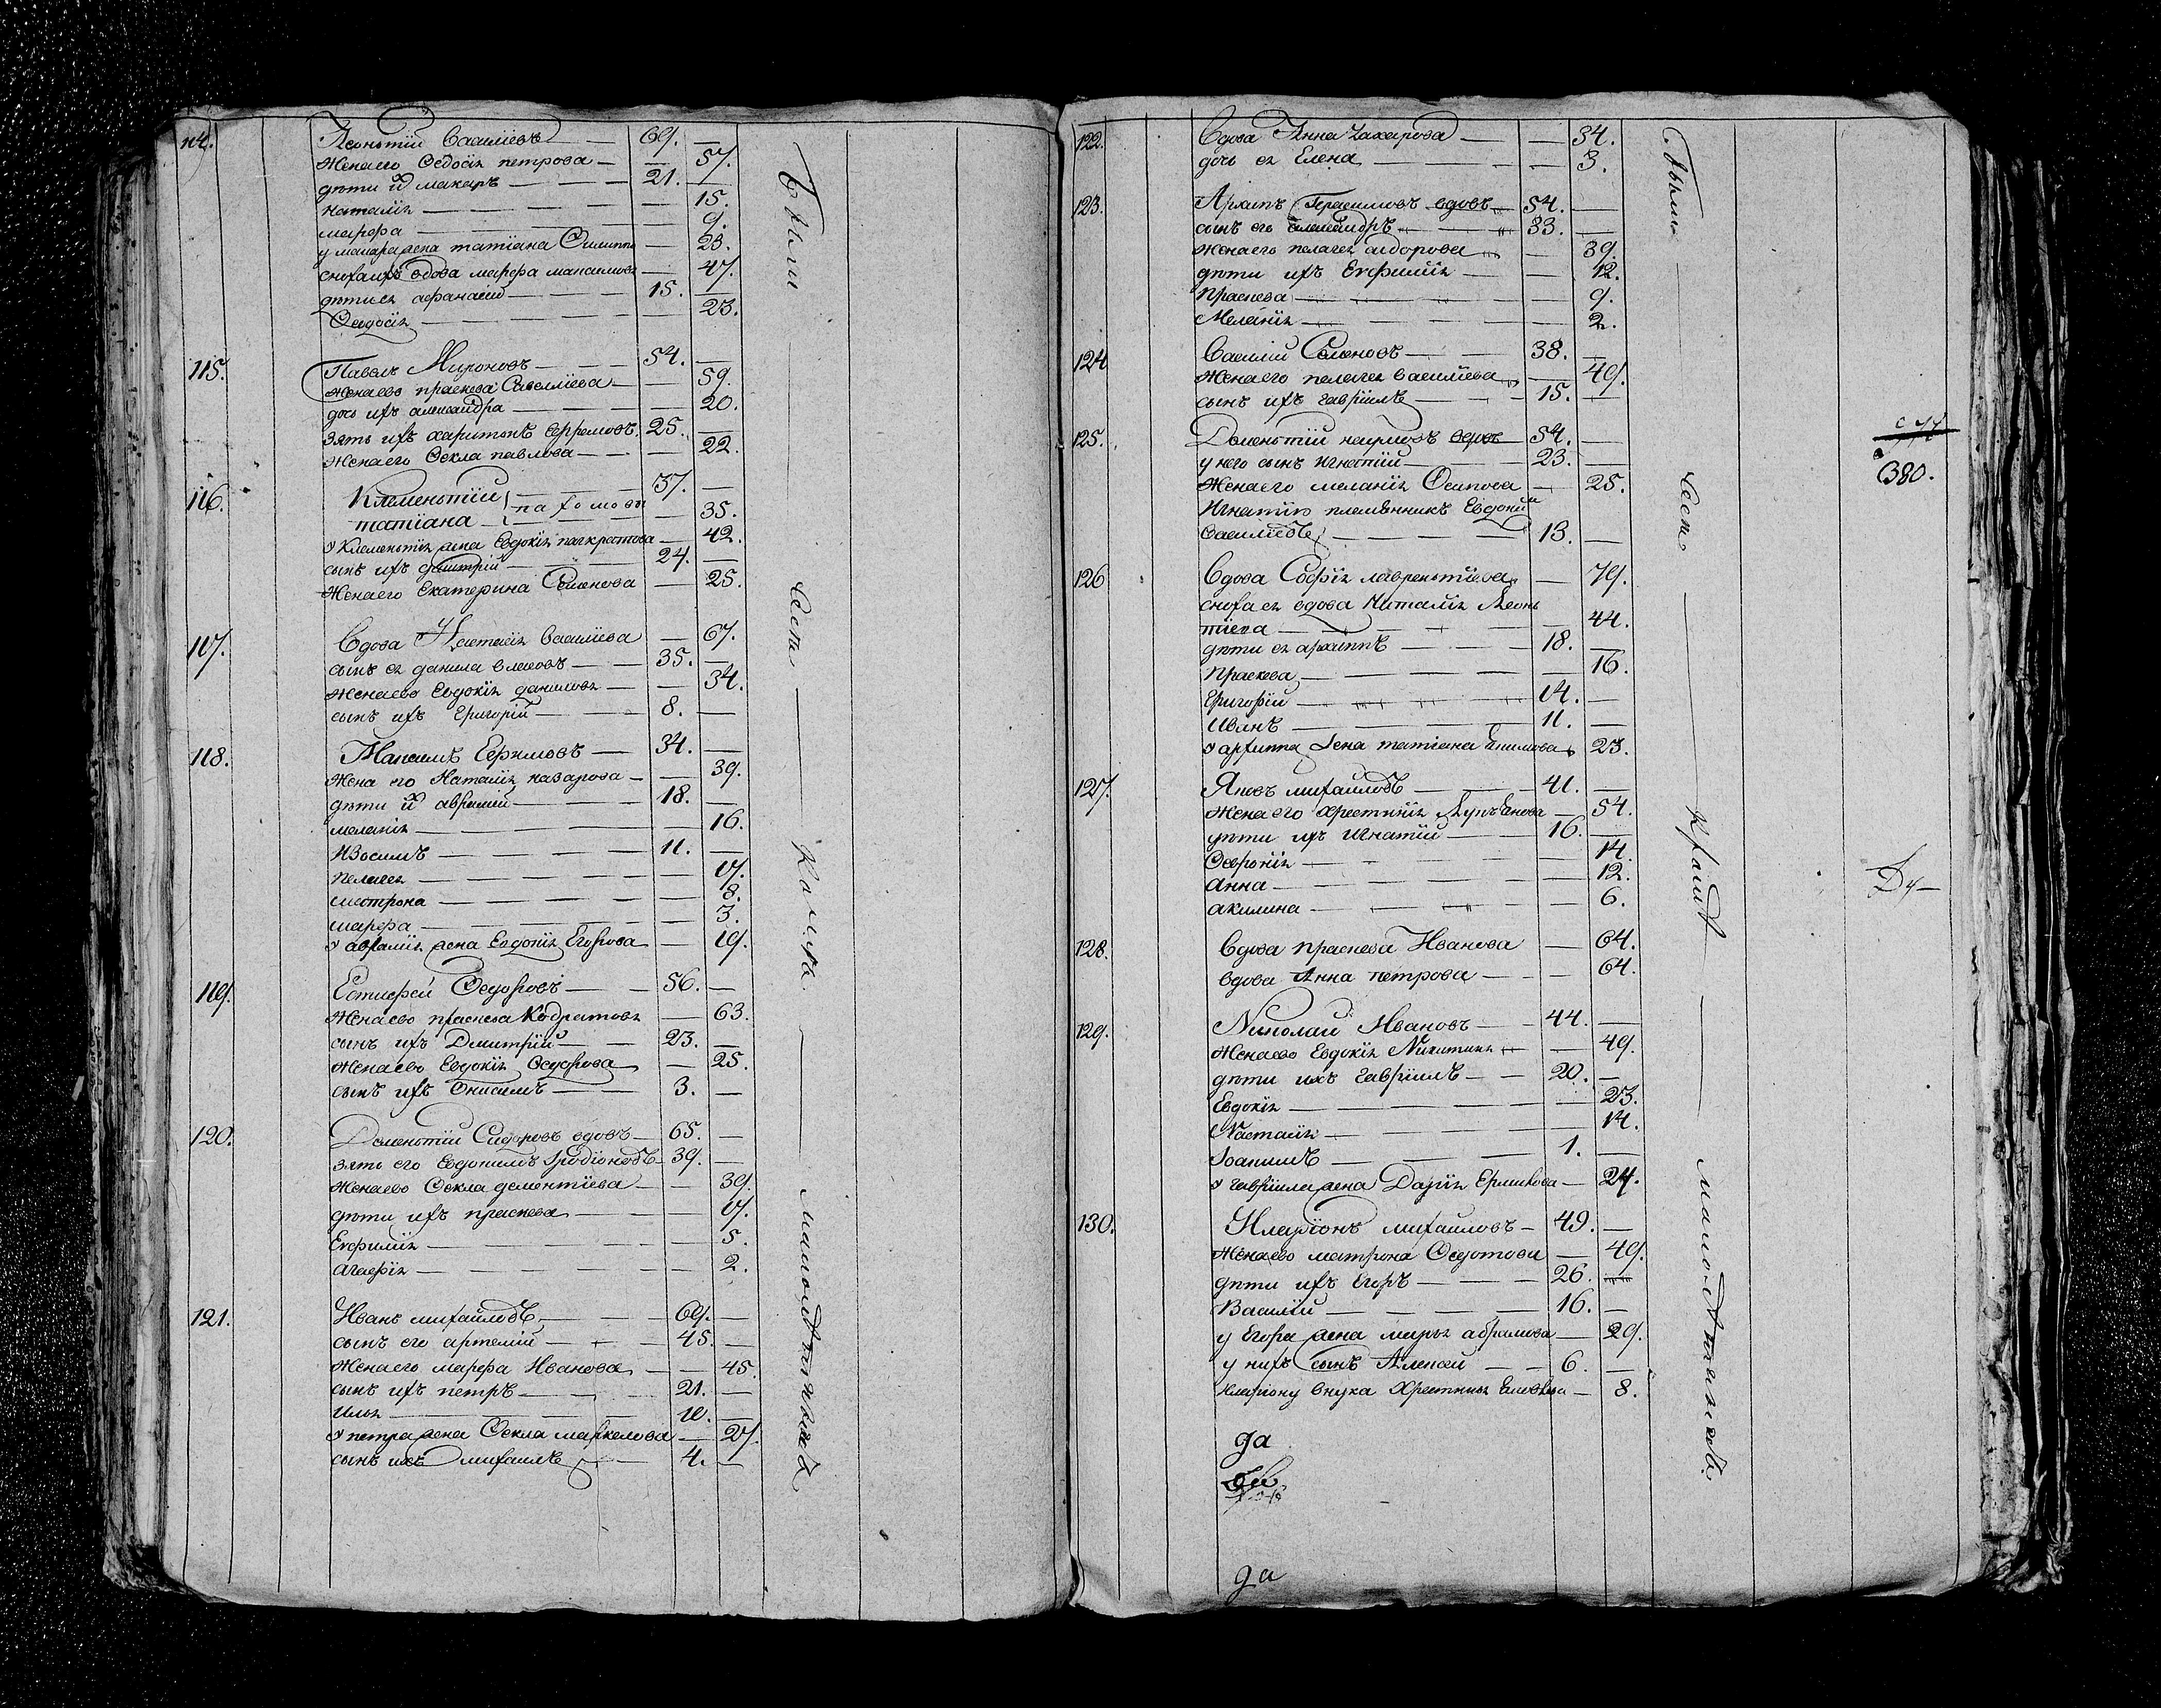 114. Леонътїи Васильевъ — 69. —
Жена его Ѳедосія петрова — — 57.
дѣти ихъ макаръ — 21. —
наталїя — — 15.
марфа — — 9.
у макара жена татїана — 23.
сноха ихъ вдова марфа максимова — 47.
дѣти ея афанасїи — 15. —
Ѳедосїя — — 23.
115. Павелъ Мироновъ — 54. —
Жена ево прасковя Савелїева — — 59.
дочь ихъ александра — — 20.
зять ихъ харитонъ ефремовъ. 25. —
Жена его Ѳекла павлова — — 22.
116. Клеменьтїи } пахомовы 37. —
татїана — 35.
у Клеменьтїя жена Евдокїя панкратова — 42.
сынъ ихъ дмитрїй — 24. —
Жена его Екатерина Семенова — 25.
117. Вдова Настасїя Василїева — 67.
сынъ ея данила власовъ — 35. —
Жена ево Евдокїя данилова — — 34.
сынъ ихъ Григорїй — 8. —
118. Максимъ Ефимовъ — 34. —
Жена его Наталїя назарова — — 39.
дѣти ихъ авраамїй — 18. —
меланїя — — 16.
Изосимъ — 11. —
пелагея — — 17.
матрона — — 8.
марфа — — 3.
у авраамїя жена Евдокїя Егорова — 19.
119. Естифей Ѳедоровъ — 56. —
Жена ево прасковя Кодратова — 63.
сынъ ихъ Дмитрїй — 23. —
Жена ево Евдокїя Ѳедорова — 25.
сынъ ихъ Онисимъ — 3. —
120. Деменьтїи Сидоровъ вдовъ — 65. —
зять его Евдокимъ Иродїоновъ — 39. —
Жена ево Ѳекла дементїева — — 39.
дѣти ихъ прасковя — — 17.
Евфимїя — — 5.
агафїя — — 2.
121. Иванъ михайловъ — 69. —
сынъ его артемїй — 45. —
Жена его марфа Иванова — — 45.
сынъ ихъ петръ — 21. —
илья — 10. —
у петра жена Ѳекла маркелова — 27.
сынъ ихъ михаилъ — 4. —
Были — Всѣ — — малолѣтныхъ
122. Вдова Анна захарова — — 34.
дочь ея Елена — — 3.
123. Архипъ Герасимовъ вдовъ — 54. —
сынъ его александръ — 33. —
Жена его пелагея сидорова — 39.
дѣти ихъ Евфимїя — — 12.
Прасковя — — 9.
Меланїя — — 2.
124 Василїй Семеновъ — 38. —
Жена его пелагея василїева — 49.
сынъ ихъ гаврїилъ — 15. —
125. Деменьтїи наумовъ вдовъ 54. —
у него сынъ Игнатїй — 23. —
Жена его меланїя Осипова — 25.
Игнатїю племянникъ Евдокимъ
Василїевъ — 13. —
126 Вдова Софїя лаврентїева — 79.
сноха ея вдова Наталїя Леонь
тїева — — 44.
дѣти ея архиппъ — 18. —
Прасковя — — 16.
Григорїй — 14. —
Иванъ — 11. —
у архиппа жена татїана — 23.
127. Яковъ михайловъ — 41. —
Жена его христинїя Лукьянова — 54.
дѣти ихъ Игнатїй — 16. —
Ѳеврония — — 14.
Анна — — 12.
акилина — — 6.
128. Вдова прасковя Иванова — 64.
вдова Анна петрова — — 64.
129. Николай Ивановъ — 44. —
Жена ево Евдокїя Никитина — 49.
дѣти ихъ гаврїилъ — 20. —
Евдокїя — — 23.
Настасїя — — 14.
Іоакимъ — 1. —
у гаврїила жена Дарїя Ермилова — 24.
130. Иларїонъ михайловъ — 49. —
Жена ево матрона Ѳедотова — 49.
дѣти ихъ Егоръ — 26. —
Василїй — 16. —
у Егора жена марья абрамова — 29.
у нихъ сынъ Алексѣй — 6. —
Иларїону внука Христинья — 8.
Были — Всѣ — кромѣ — малолѣтныхъ
380.
да
да